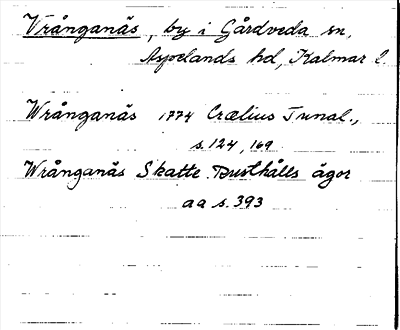 Vrånganäs, by i Gårdveda sn,
Aspelands hd, Kalmar l.
Wrånganäs 1774 Crælius Tunal.,
s. 124, 169
Wrånganäs Skatte Rusthålls ägor
a a s. 393